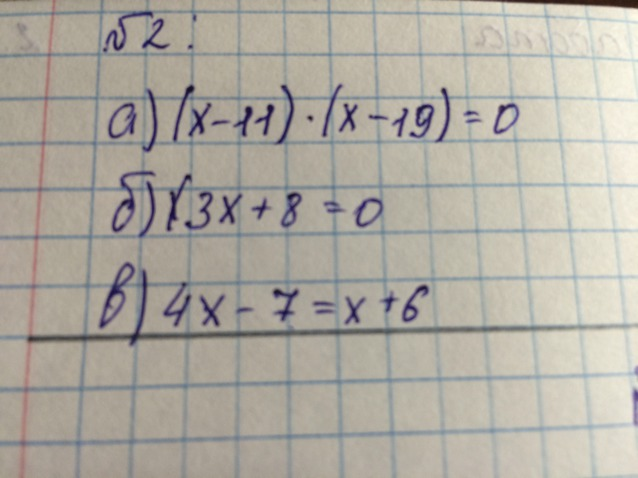 №2:
а) (x-11)·(x-19)=0
б) (3x+8=0
в) 4x-7=x+6